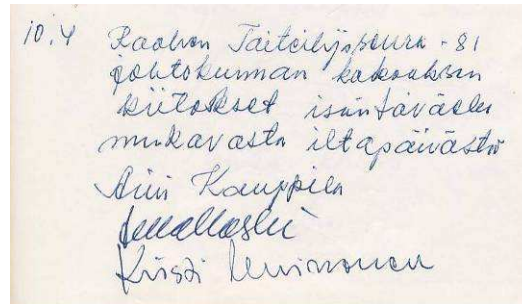 10.4 Raahen Taiteilijaseura - 81
johtokunnan kokouksen
kiitokset isäntäväelle
mukavasta iltapäivästä
Aini Kauppila
Kirsti